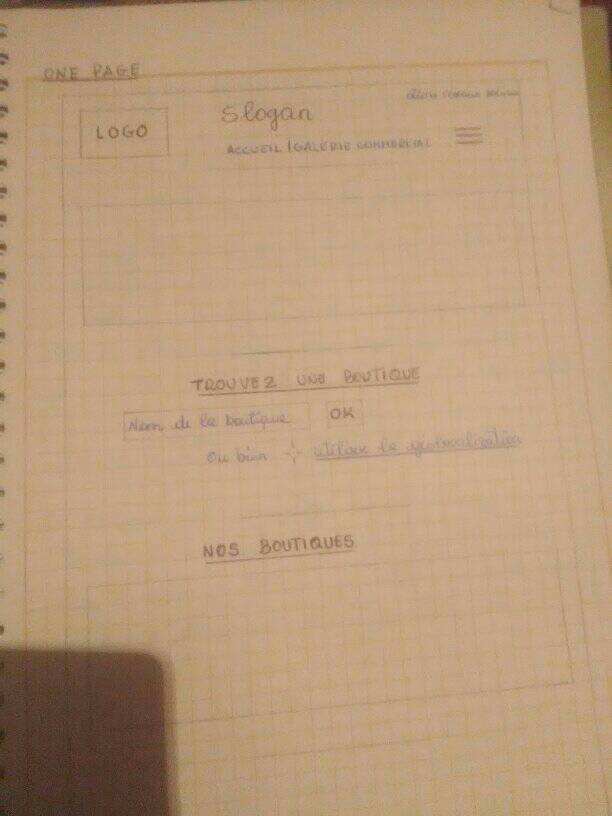 ONE PAGE
LOGO
Slogan
ACCUEIL / GALERIE COMMERCIAL
TROUVEZ UNE BOUTIQUE
Nom de la boutique
OK
Ou bien utiliser la géolocalisation
NOS BOUTIQUES